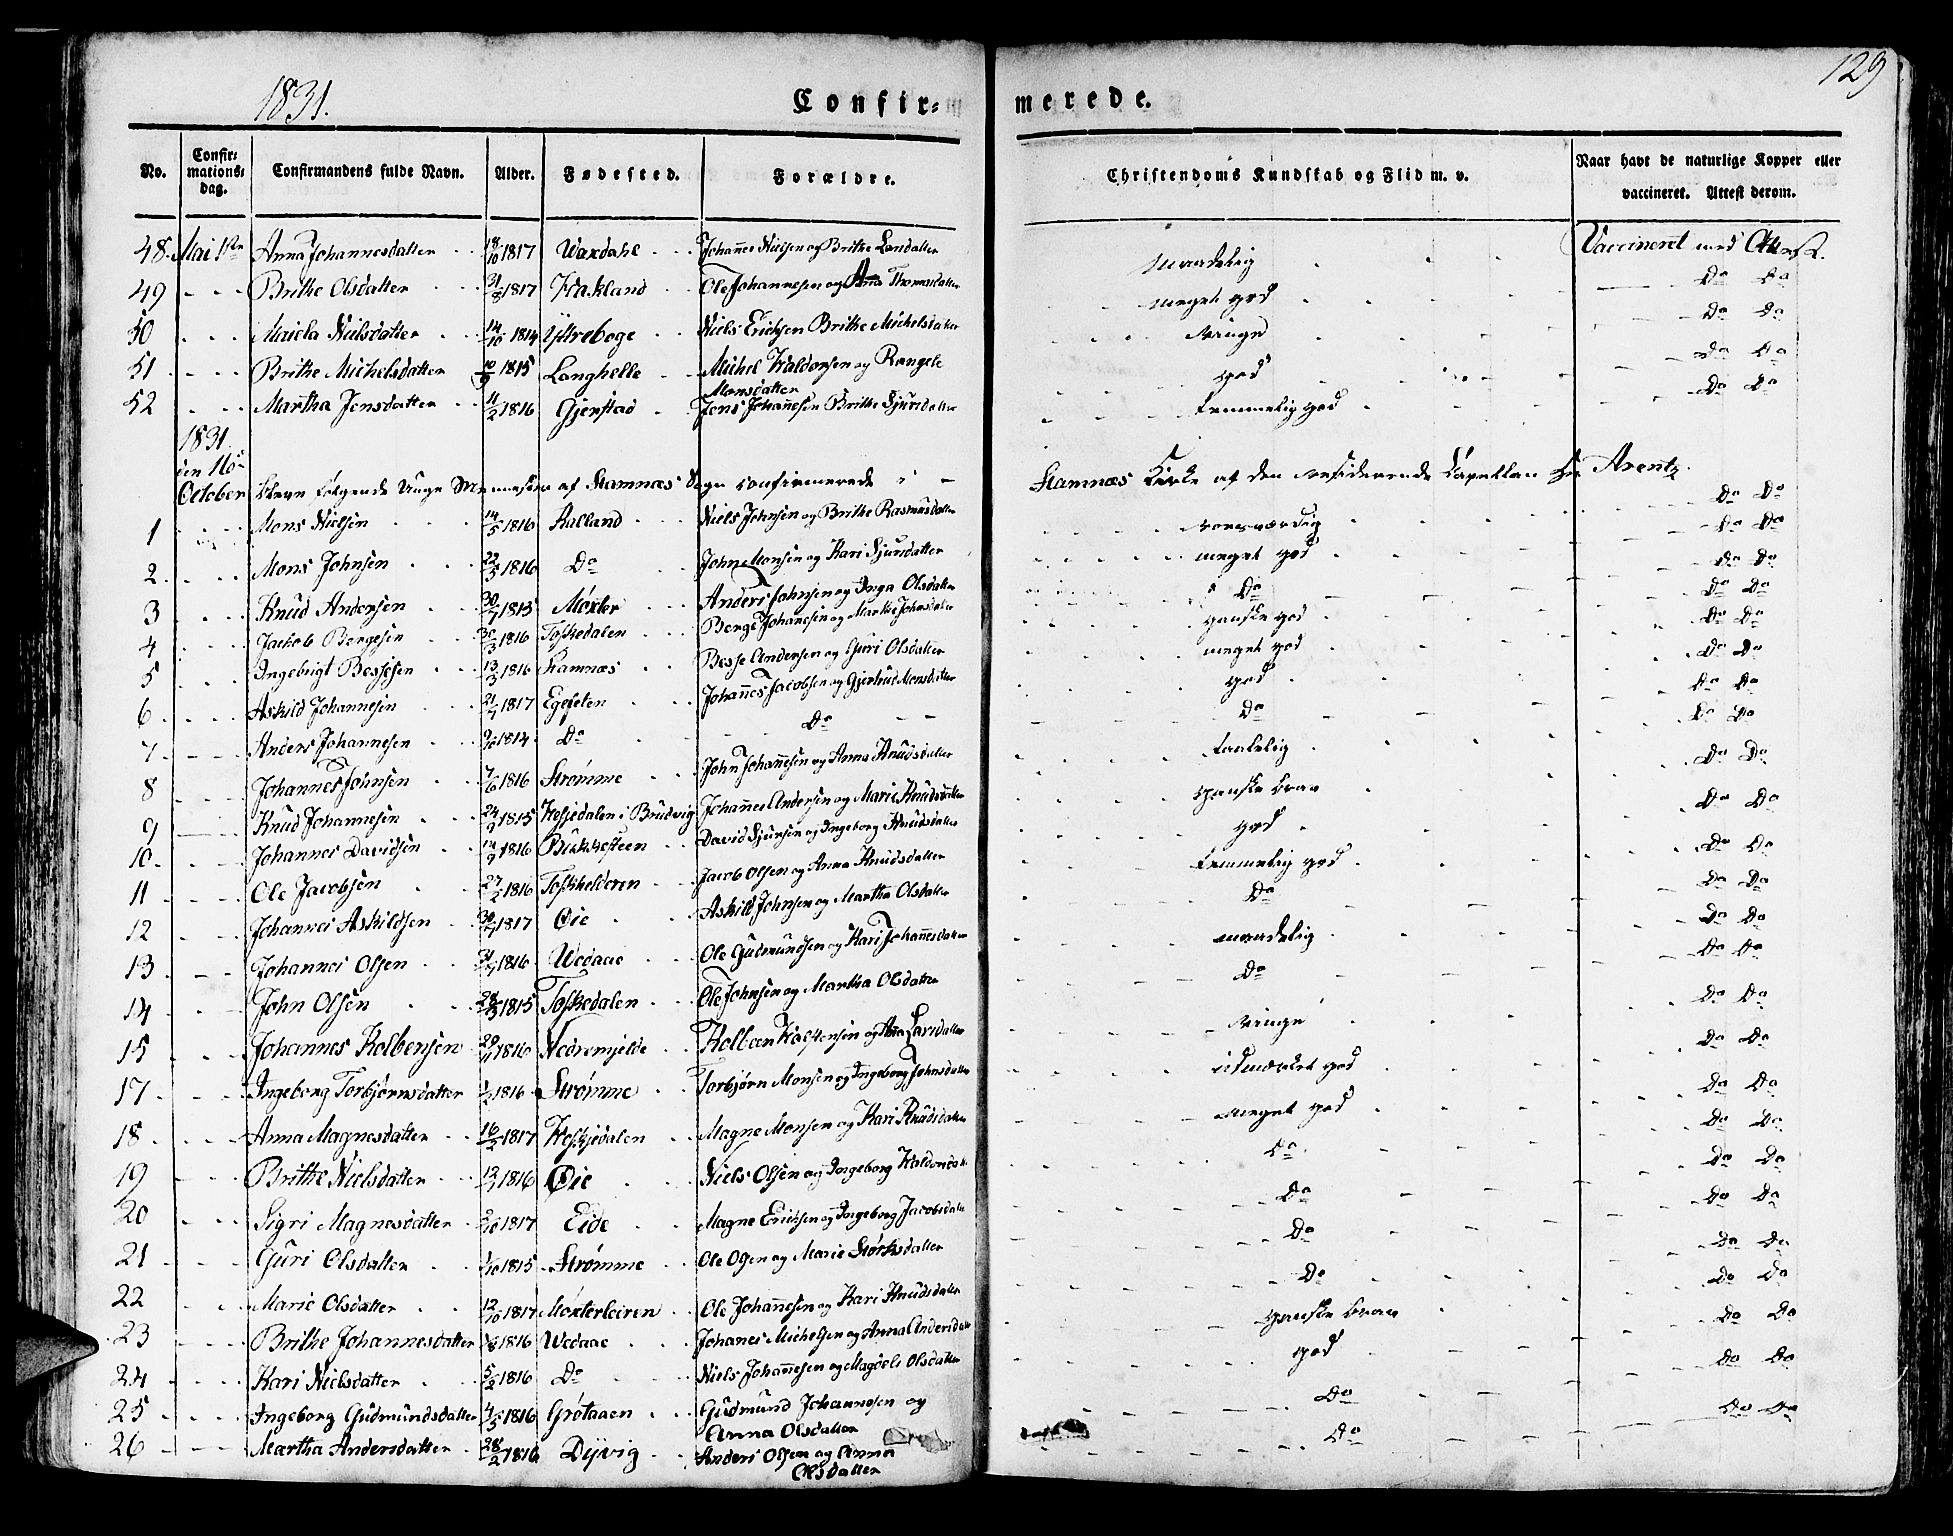 129
1831.
Confir= merede.
No. | Confir=mations=dag. | Confirmandens fulde Navn. | Alder. | Fødested. | Forældre. | Christendoms Kundskab og Flid m. v. | Naar havt de naturlige Kopper eller vaccineret. Attest derom.
48. Mai 1ste Anna Johannesdatter 18/10 1817 Waxdahl Johannes Nielsen og Brithe Larsdatter maadelig Vaccineret med Attest.
49 Brithe Olsdatter 31/8 1817 Ole Johannesen og Anna Thomasdatter meget god Do Do
50 Maritha Nielsdatter 14/10 1814 Ystreboge Niels Ericksen Brithe Michelsdatter ringe Do Do
51 Brithe Michelsdatter 10/9 1815 Langhelle Michel Haldorsen og Rangele Monsdatter god Do Do
52 Martha Jensdatter 11/2 1816 Gjerstad Jens Johannesen Brithe Sjursdatter temmelig god Do Do
1831 den 16de October bleve følgende Unge Mennesker af Stamnæs Sogn confirmerede i Stamnæs Kirke af den residerende Capellan Hr Arentz.
1 Mons Nielsen 14/5 1816 Kalland Niels Johnsen og Brithe Rasmusdatter roesværdig Do Do
2. Mons Johnsen 22/5 1816 Do John Monsen og Kari Sjursdatter meget god Do Do
3 Knud Andersen 30/7 1815 Moxter Anders Johnsen og Inga Olsdatter Do Do Do
4 Jackob Bergesen 30/3 1816 Toskedalen Berge Johannesen og Marthe Johnsdatter ganske god Do Do
5 Ingebrigt Bessesen 13/3 1816 Stamnæs Besse Andersen og Guri Olsdatter meget god Do Do
6 Askild Johannesen 21/7 1817 Egesæten Johannes Jacobsen og Gjertrud Monsdatter god Do Do
7 Anders Johannesen 1814 Do Do Do Do Do
8 Johannes Johnsen 7/6 1816 Strømme John Johannesen og Anna Knudsdatter taalelig Do Do
9 Knud Johannesen 24/9 1815 Hesjedalen i Brudvig Johannes Andersen og Marie Knudsdatter ganske brav Do Do
10 Johannes Davidsen 14/9 1816 Bukkesteen David Sjursen og Ingeborg Knudsdatter god Do Do
11 Ole Jacobsen 27/2 1816 Toskhelderen Jacob Olsen og Anna Knudsdatter temmelig god Do Do
12 Johannes Askildsen 30/7 1817 Øie Askild Johnsen og Martha Olsdatter Do Do Do
13 Johannes Olsen 31/7 1816 Wedaae Ole Gudmundsen og Kari Johannesdatter maadelig Do Do
14 John Olsen 28/3 1815 Toskedalen Ole Johnsen og Martha Olsdatter Do Do Do
15 Johannes Kolbensen 29/11 1816 Nedremjelde Kolbeen og Anna Larsdatter ringe Do Do
17 Ingeborg Torbjørnsdatter 1816 Strømme Torbjørn Monsen og Ingeborg Johnsdatter udmærket god Do Do
18 Anna Magnesdatter 16/2 1817 Hesjedalen Magne Monsen og Kari Knudsdatter meget god Do Do
19 Brithe Nielsdatter 12/7 1816 Øie Niels Olsen og Ingeborg Haldorsdatter Do Do Do
20 Sigri Magnesdatter 2/10 1817 Eide Magne Ericksen og Ingeborg Jacobsdatter Do Do Do
21 Guri Olsdatter 1/10 1815 Strømme Ole Olsen og Marie Størksdatter Do Do Do
22 Marie Olsdatter 12/10 1817 Moxterleiren Ole Johannesen og Kari Knudsdatter Do Do Do
23 Brithe Johannesdatter 1816 Wedaae Johanes Michelsen og Anna Andersdatter ganske brav Do Do
24 Kari Nielsdatter 5/2 1816 Do Niels Johannesen og Magdeli Olsdatter god Do Do
25 Ingeborg Gudmundsdatter 4/5 1816 Grøtaaen Gudmund Johannesen og Anna Olsdatter Do Do Do
26 Martha Andersdatter 28/2 1816 Dyvig Anders Olsen og Anna Olsdatter Do